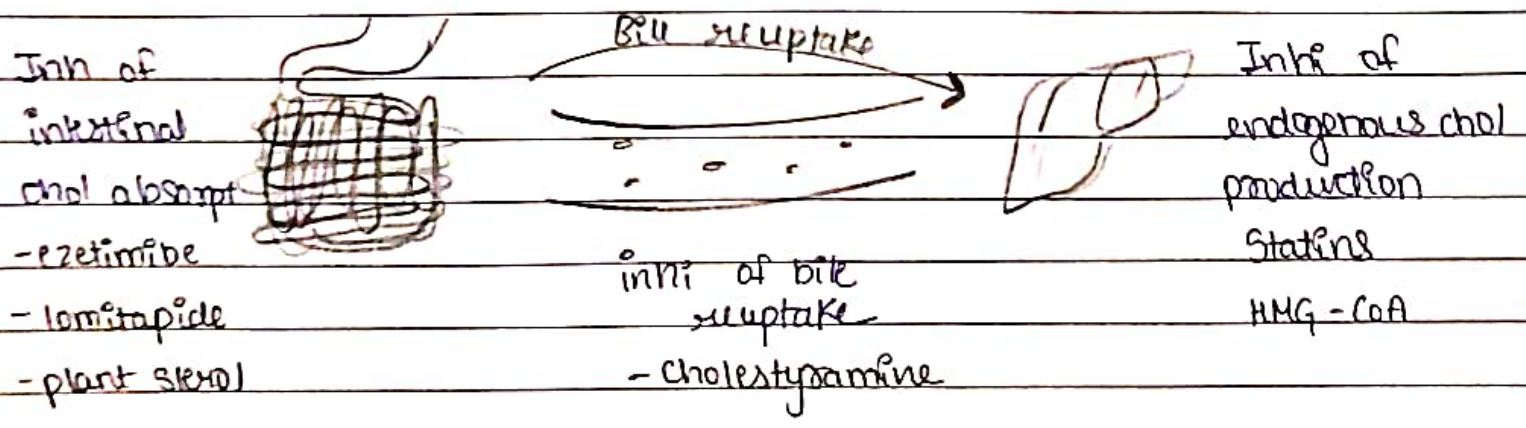 Inh of
intestinal
chol absorpt
-ezetimibe
- lomitapide
- plant sterol
Bile reuptake
inhi of bile
reuptake
- Cholestyramine
Inhi of
endogenous chol
production
Statins
HMG-CoA